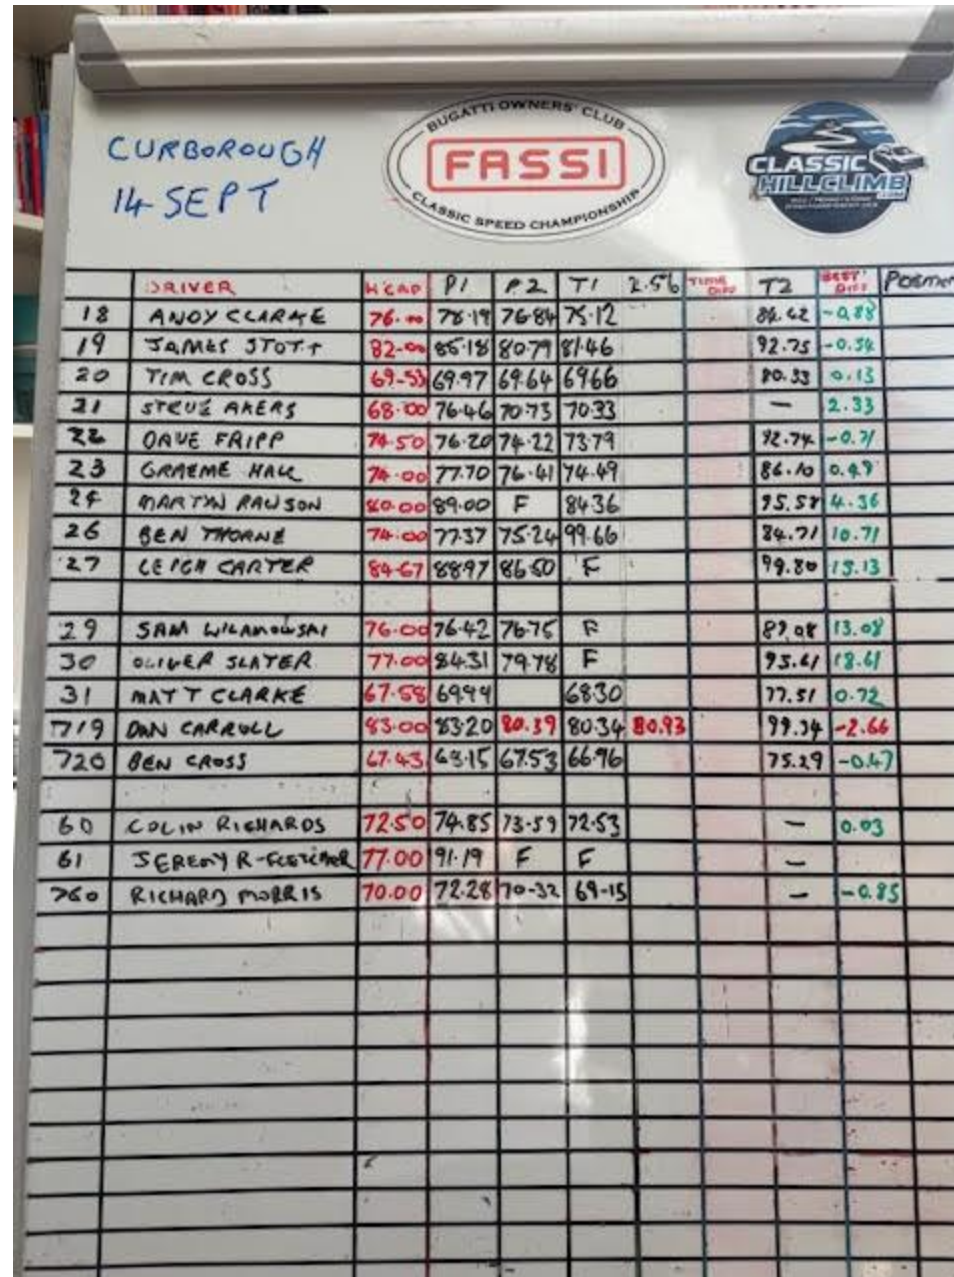 CURBOROUGH
14 SEPT
BUGATTI OWNERS' CLUB
FASSI
CLASSIC SPEED CHAMPIONSHIP
CLASSIC
HILLCLIMB
DRIVER H'CAP P1 P2 T1 2.56 TIME DIFF T2 BEST DIFF
18 ANDY CLARKE 76.00 78.19 76.84 75.12 -0.88
19 JAMES STOTT 82.00 85.18 80.79 81.46 92.75 -0.54
20 TIM CROSS 69-53 69.97 69.64 6966 80.33 0.13
21 STEVE AKERS 68.00 76.46 70.73 70.33 — 2.33
22 DAVE FRIPP 74.50 76.20 74.22 73.79 92.74 -0.71
23 GRAEME HALL 74.00 77.70 76.41 74.49 86.10 0.49
24 MARTYN RAWSON 80.00 89.00 F 84.36 95.58 4.36
26 BEN THORNE 74.00 77.37 75.24 99.66 84.71 10.71
27 LEIGH CARTER 84-67 88.97 86.50 F 99.80 15.13
29 SAM WILAMOWSKI 76.00 76.42 76.75 F 89.08 13.08
30 OLIVER SLATER 77.00 84.31 79.78 F 95.61 18.61
31 MATT CLARKE 67.58 69.94 68.30 77.51 0.72
719 DAN CARROLL 83.00 83.20 80.39 80.34 80.93 99.34 -2.66
720 BEN CROSS 67.43 68.15 67.53 66.96 75.29 -0.47
60 COLIN RICHARDS 72.50 74.85 73-59 72.53 — 0.03
61 JEREMY R-FLETCHER 77.00 91.19 F F —
760 RICHARD MORRIS 70.00 72.28 70-32 69-15 — -0.85